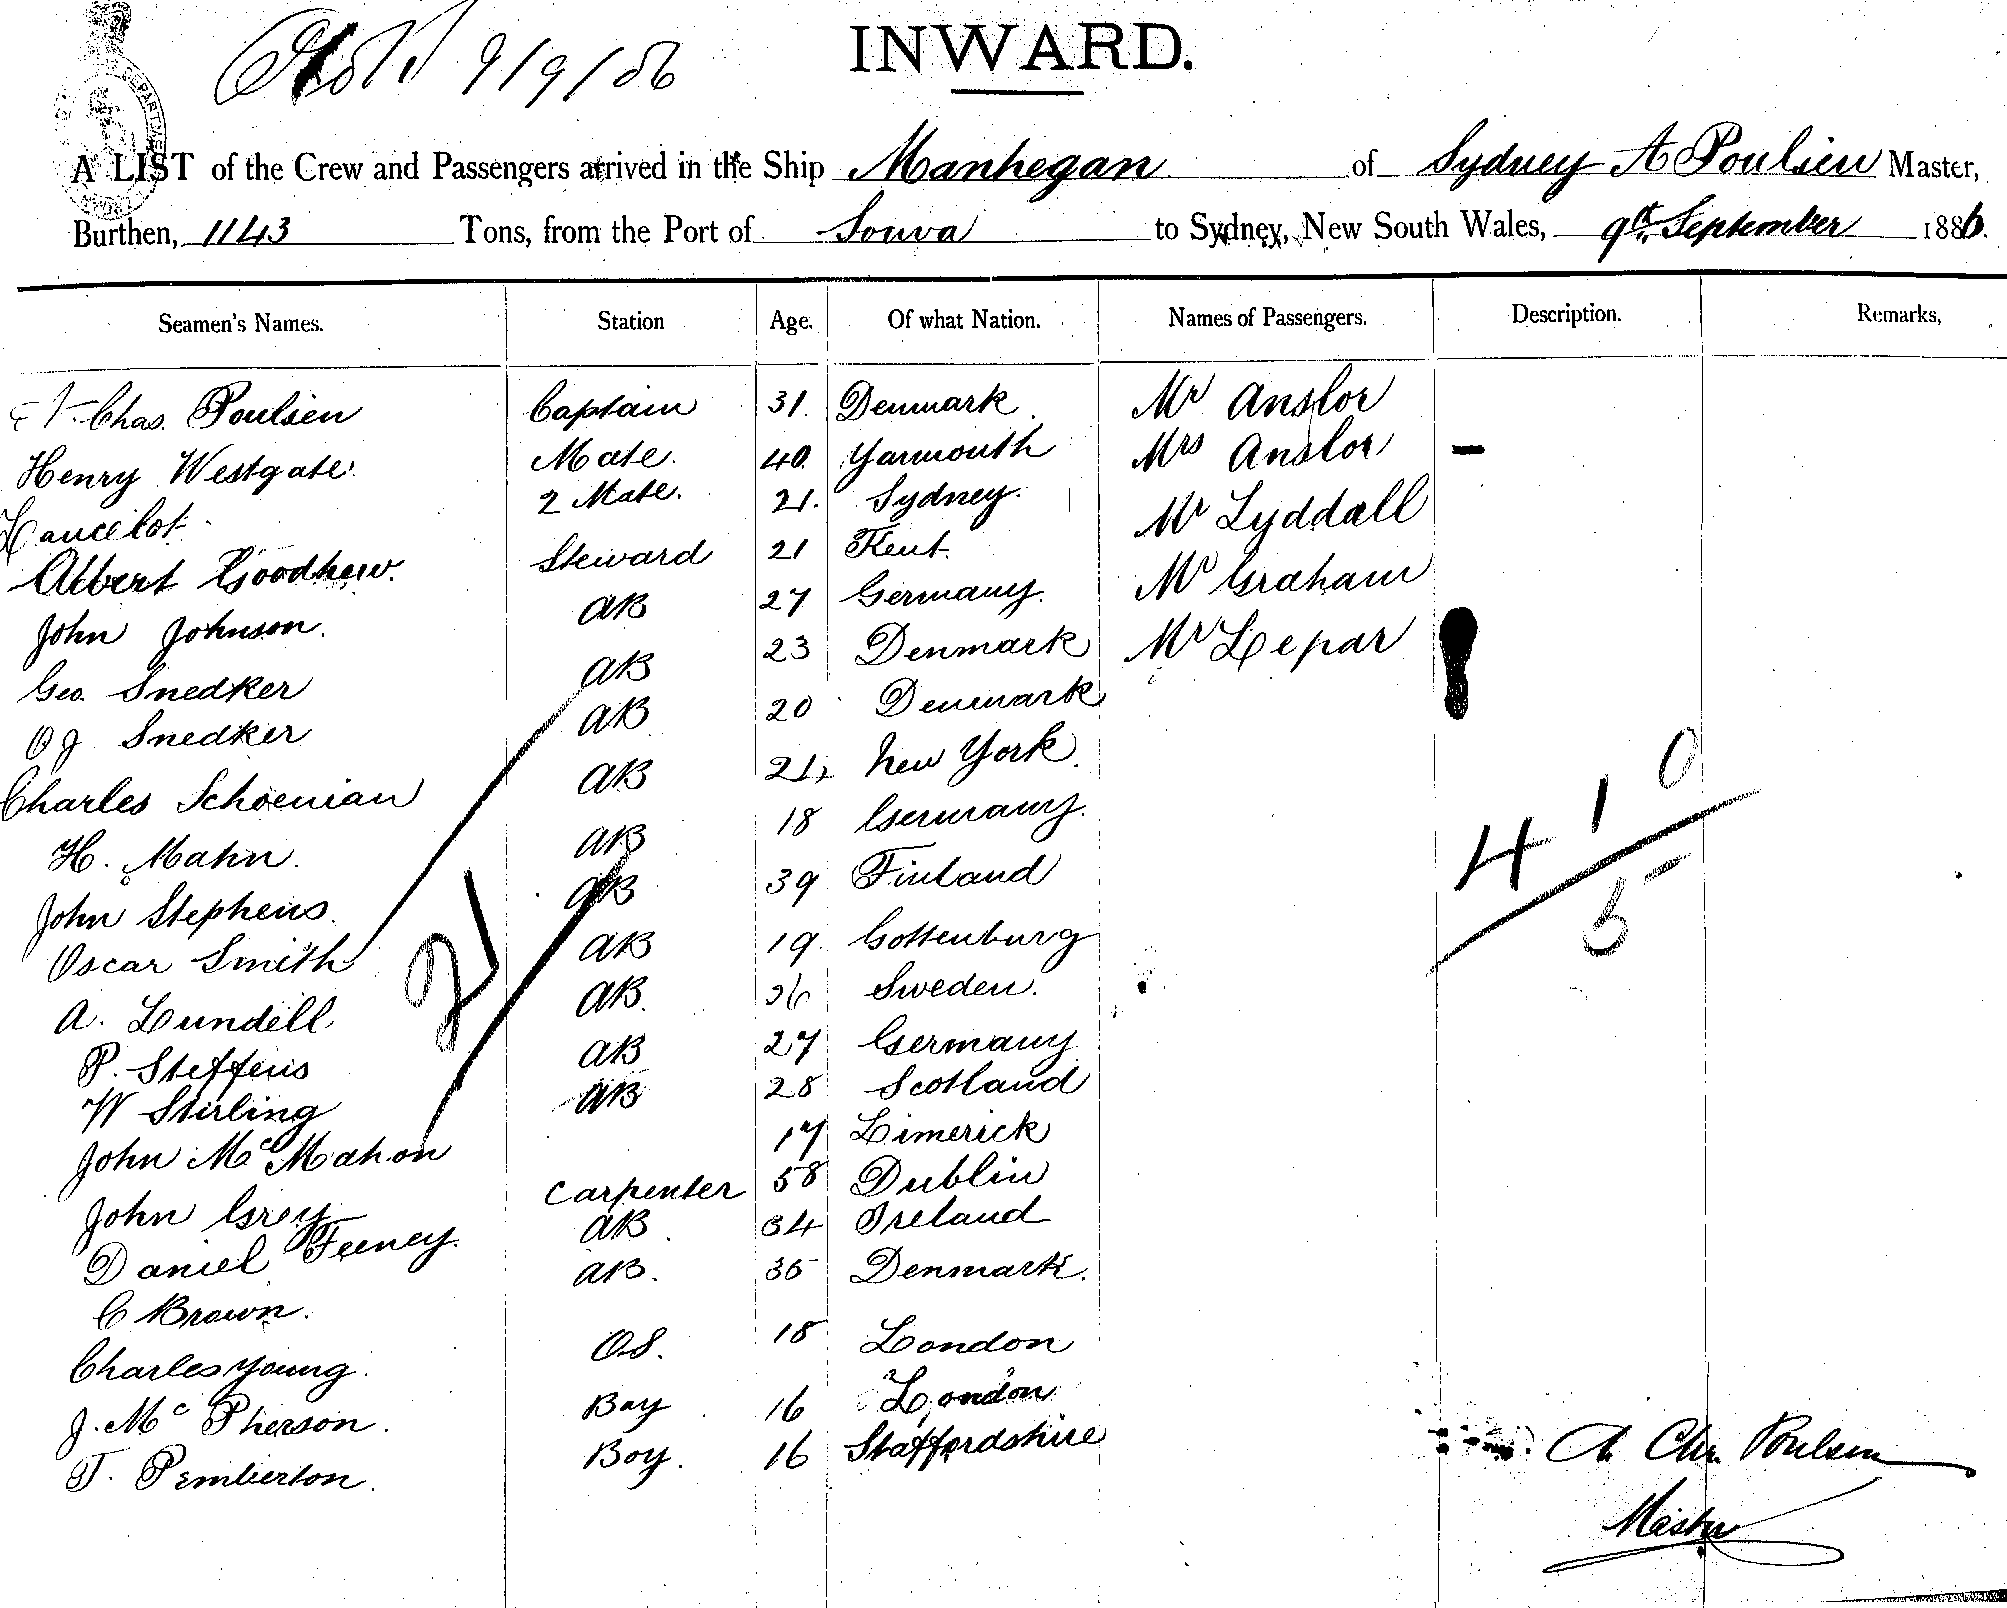 9/9/86
INWARD.
A LIST of the Crew and Passengers arrived in the Ship Manhegan of Sydney A Poulsen Master,
Burthen, 1143 Tons, from the Port of Souva to Sydney, New South Wales, 9th September 1886.
Seamen's Names. Station Age. Of what Nation. Names of Passengers. Description. Remarks,
Chas. Poulsen Captain 31. Denmark. Mr Anslor
Henry Westgate Mate. 40. Yarmouth Mrs Anslor –
Lancelot 2 Mate. 21. Sydney. Mr Lyddall
Albert Goodhew. Steward 21 Kent. Mr Graham
John Johnson. AB 27 Germany. Mr Lepar
Geo. Snedker AB 23 Denmark
O J Snedker AB 20 Denmark
Charles Schoenian AB 21, New York.
H. Mahn. AB 18 Germany.
John Stephens. AB 39 Finland
Oscar Smith AB 19. Gottenburg
A. Lundell AB. 26 Sweden.
P. Steffens AB 27 Germany
W Stirling AB 28 Scotland
John McMahon 17 Limerick
John Grey Carpenter 58 Dublin
Daniel Feeney. AB 34 Ireland
C Brown. AB. 35 Denmark.
Charles Young. OS. 18 London
J. McPherson. Boy 16 London
T. Pemberton. Boy. 16 Staffordshire
21
4 1 0
5
A Chr. Poulsen
Master